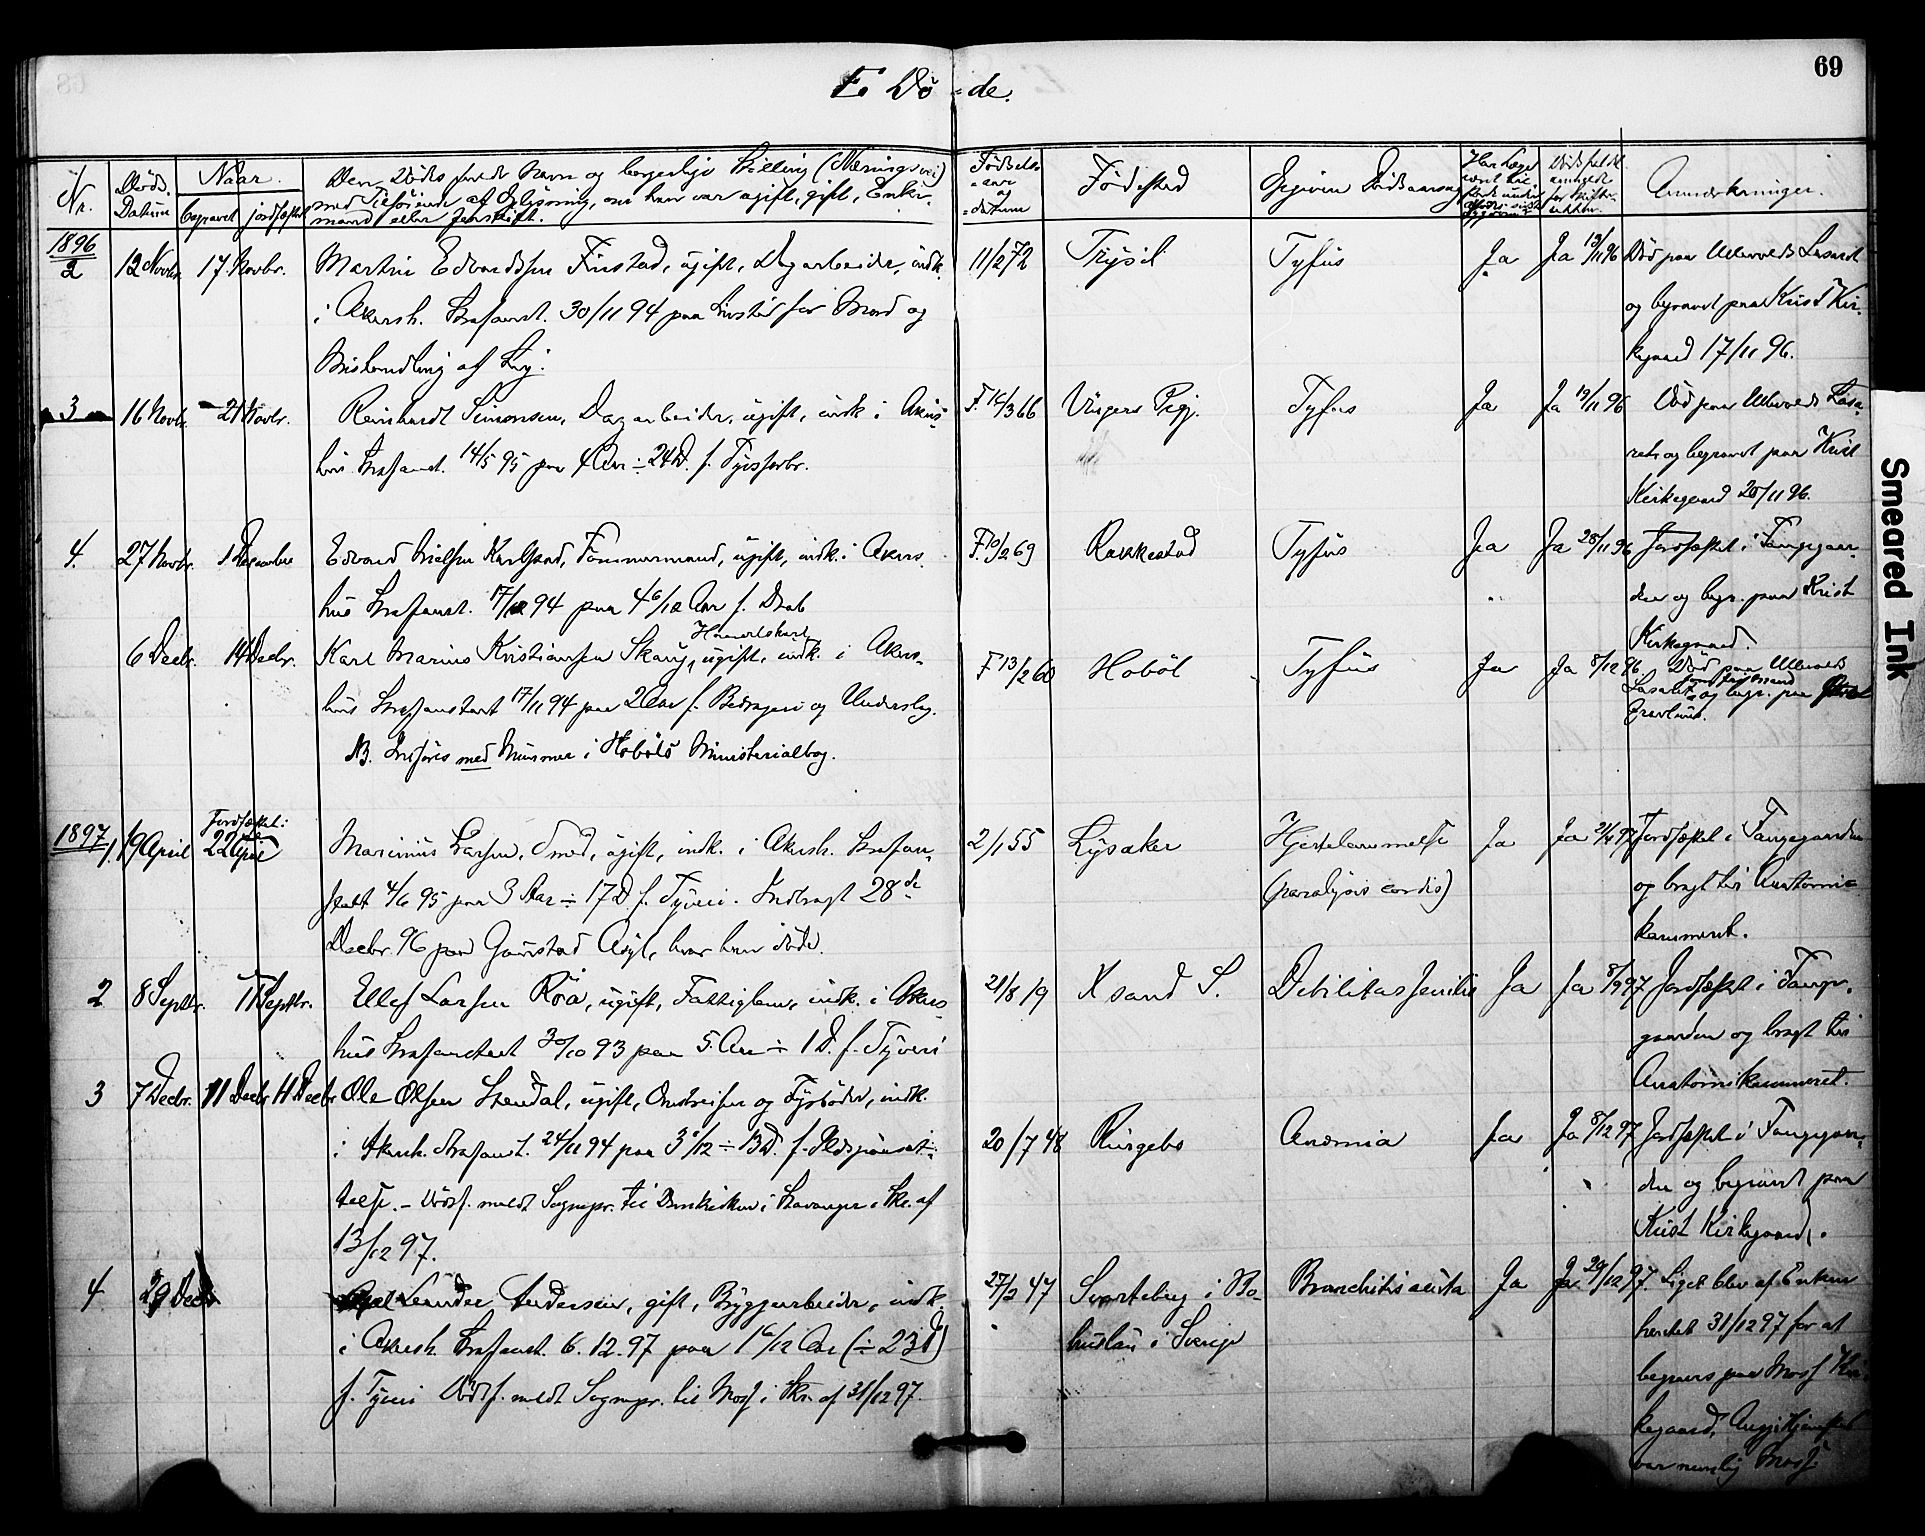 69
E. Dö=de.
Nr. Döds Datum Naar begravet jordfæstet
Den Dödes fulde Navn og borgerlige Stilling (Næringsvei)
med Tilföiende af Oplysning, om han var ugift, gift, Enke-
mand eller fraskilt.
Födsels-
aar
og
=datum
Födested
Opgiven Dödsaarsag
Anmærkninger.
1896
2 12 Novbr. 17 Novbr. Martin Edvardsen Fürstad, ugift, Dagarbeider, indk. 11/2 72 Trysil Tyfus Ja Ja 13/11 96 Död paa Ullevolds Lasaret
i Akersh. Strafanst. 30/11 94 paa Livstid for Mord og og begravet paa Krist Kir-
Mishandling af Lig. kegaard 17/11 96.
3 16 Novbr. 21 Novbr. Reinhardt Simonsen, Dagarbeider, ugift, indk. i Akers- F. 16/3 66 Vingers Pgj. Tyfus Ja Ja 19/11 96 Död paa Ullevolds Lasa-
hus Strafanst. 14/5 95 paa 4 Aar ÷ 24 D. f. Tyvsforbr. ret og begravet paa Krist
Kirkegaard 20/11 96.
4. 27 Novbr. 1 December Edvard Nielsen Karlstad, Tömmermand, ugift, indk. i Akers- F. 10/2 69 Rakkestad Tyfus Ja Ja 28/11 96 Jordfæstet i Fangegaar-
hus Strafanst. 17/12 94 paa 4 6/12 Aar f. Drab den og begr. paa Krist
Kirkegaard.
6 Decbr. 14 Decbr. Karl Marius Kristiansen Skaug, ugift, indk. i Akers- F 13/2 60 Hobøl Tyfus Ja Ja 8/12 96. Död paa Ullevolds
hus Strafanstalt 17/11 94 paa 2 Aar f. Bedrageri og Underslag. Lasaret og begr. paa
Gravlund.
NB. Indföres med Nummer i Hobøls Ministerialbog.
1897 Jordfæstet:
1, 19 April 22 April Marinius Larsen, Smed, ugift, indk. i Akersh. Strafan- 2/1 55 Lysaker Hjertelammelse Ja Ja 2/4 97 Jordfæstet i Fangegaarden
stalt 4/6 95 paa 3 Aar ÷ 17 D. f. Tyveri. Indbragt 28de (paralysis cordis) og bragt til Anatomi-
Decbr. 96 paa Gaustad Asyl, hvor han döde. kammeret.
2 8 Septbr. 11 Septbr. Ellef Larsen Röa, ugift, Fattiglem, indk. i Akers- 21/8 19 Xsand S. Debilitas senilis Ja Ja 8/9 97 Jordfæstet i Fange-
hus Strafanstalt 30/10 93 paa 5 Aar ÷ 1 D. f. Tyveri gaarden og bragt til
Anatomikammeret.
3 7 Decbr. 11 Decbr 11 Decbr Ole Olsen Stendal, ugift, Omstreifer og Fyrböder, indk. 20/7 48 Ringebo Anæmia Ja Ja 8/12 97 Jordfæstet i Fangegaar-
i Akersh. Strafanst. 24/11 94 paa 3 9/12 ÷ 13 D. f. Ildspaasæt- den og begravet paa
telse. – Dödsf. meldt Sognepr. til Domkirken i Stavanger i Skr. af Krist Kirkegaard.
13/12 97.
4 29 Decbr Leander Andersen, gift, Byggearbeider, indk. 27/2 47 Svarteborg i Bo- Bronchitis acuta Ja Ja 29/12 97. Liget blev af Enken
i Akersh. Strafanst. 6.12.97 paa 1 6/12 Aar (÷ 23 D) huslän i Sverige hentet 31/12 97 for at
f. Tyveri Dödsf. meldt Sognepr. til Moss i Skr. af 31/12 97. begraves paa Moss Kir-
kegaard,
var nemlig Moss.
Smeared Ink